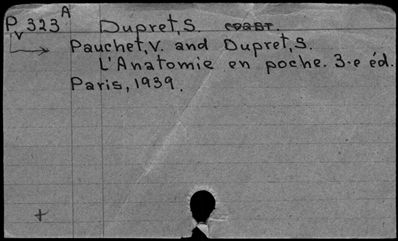 P 323 A Dupret, S.
v
Pauchet, V. and Dupret, S.
L'Anatomie en poche. 3-e éd.
Paris, 1939.
+